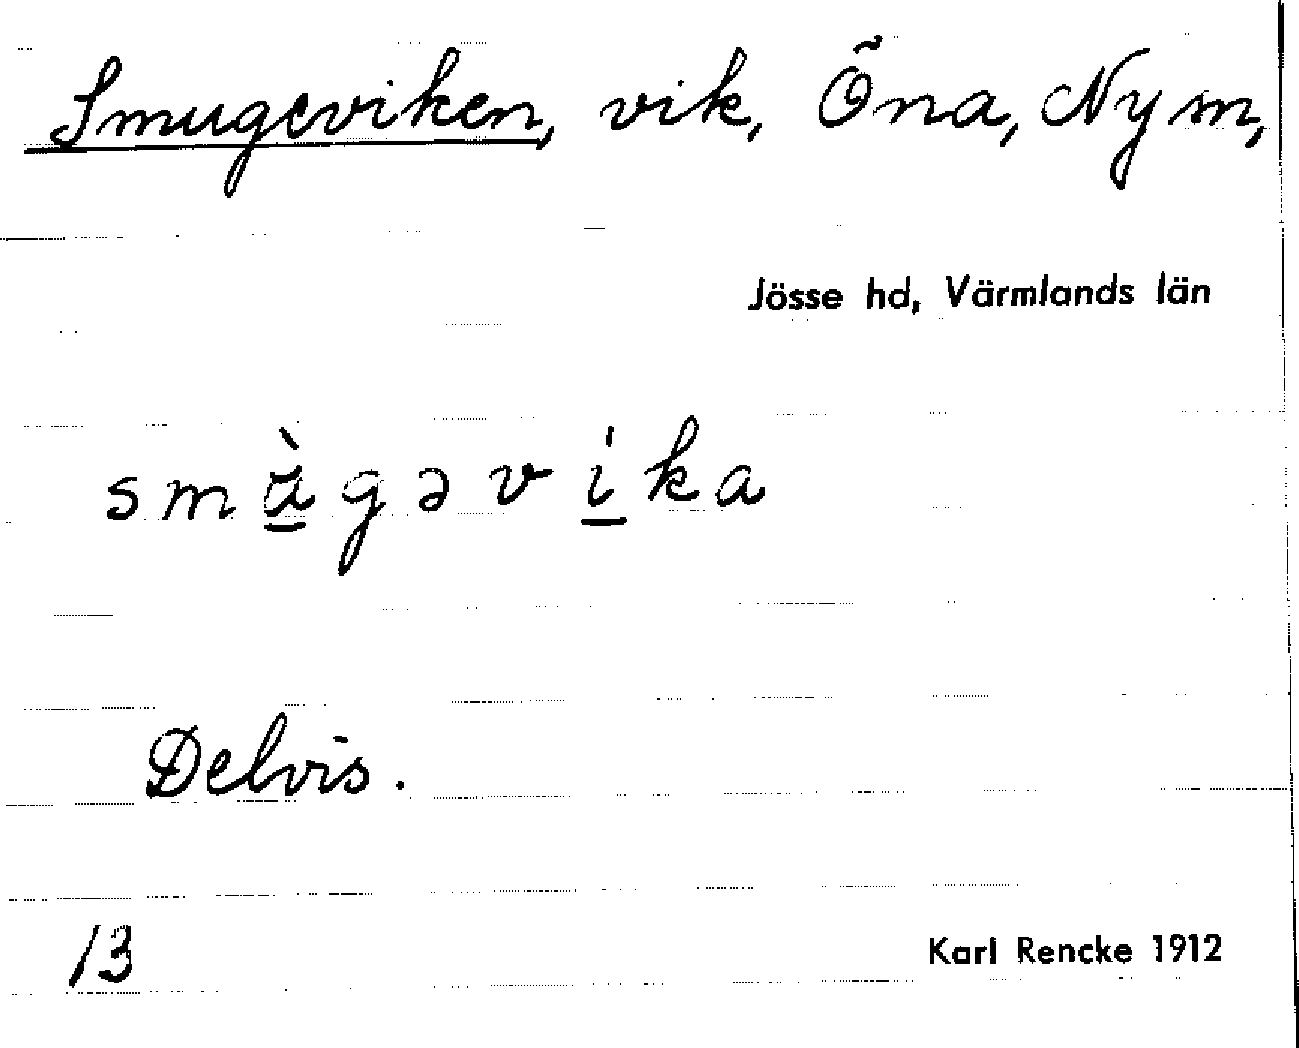 Smugeviken, vik, Õna, Ny sn,
Jösse hd, Värmlands län
smàgəvíka
Delvis.
13
Karl Rencke 1912